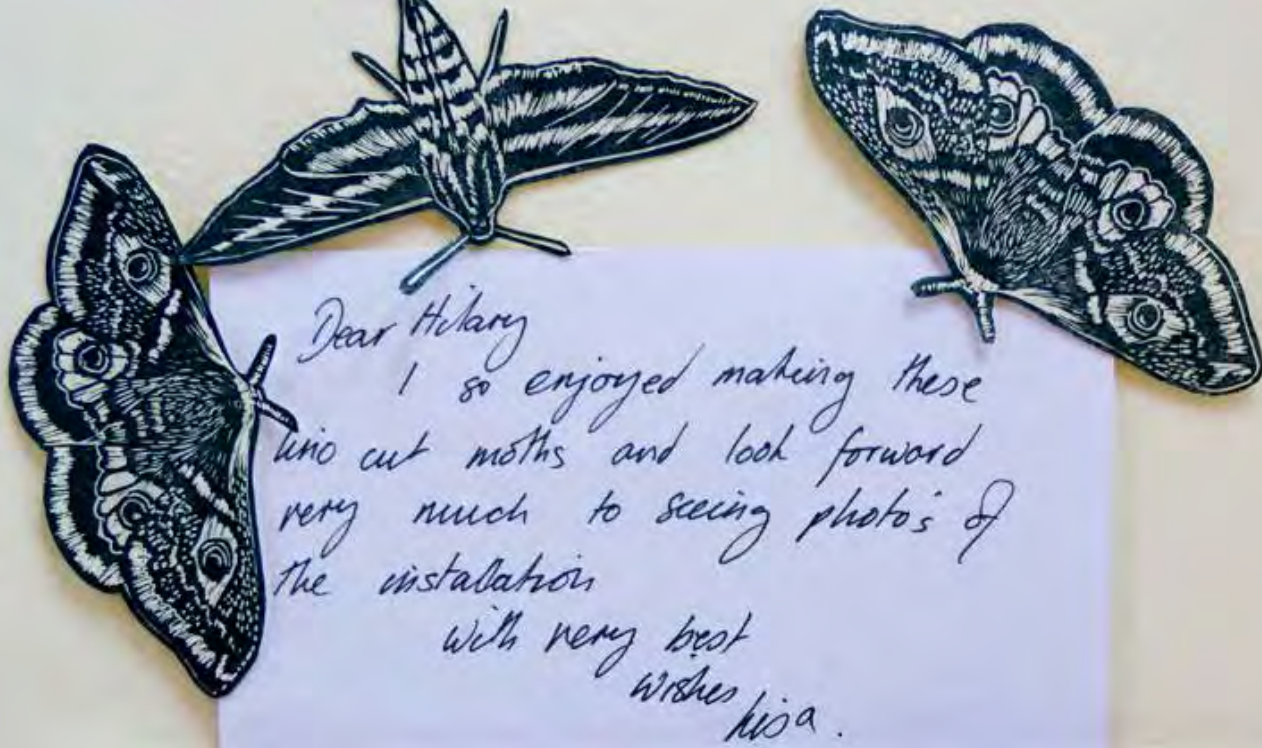 Dear Hilary
I so enjoyed making these
lino cut moths and look forward
very much to seeing photo's of
the installation
with very best
wishes
Lisa.